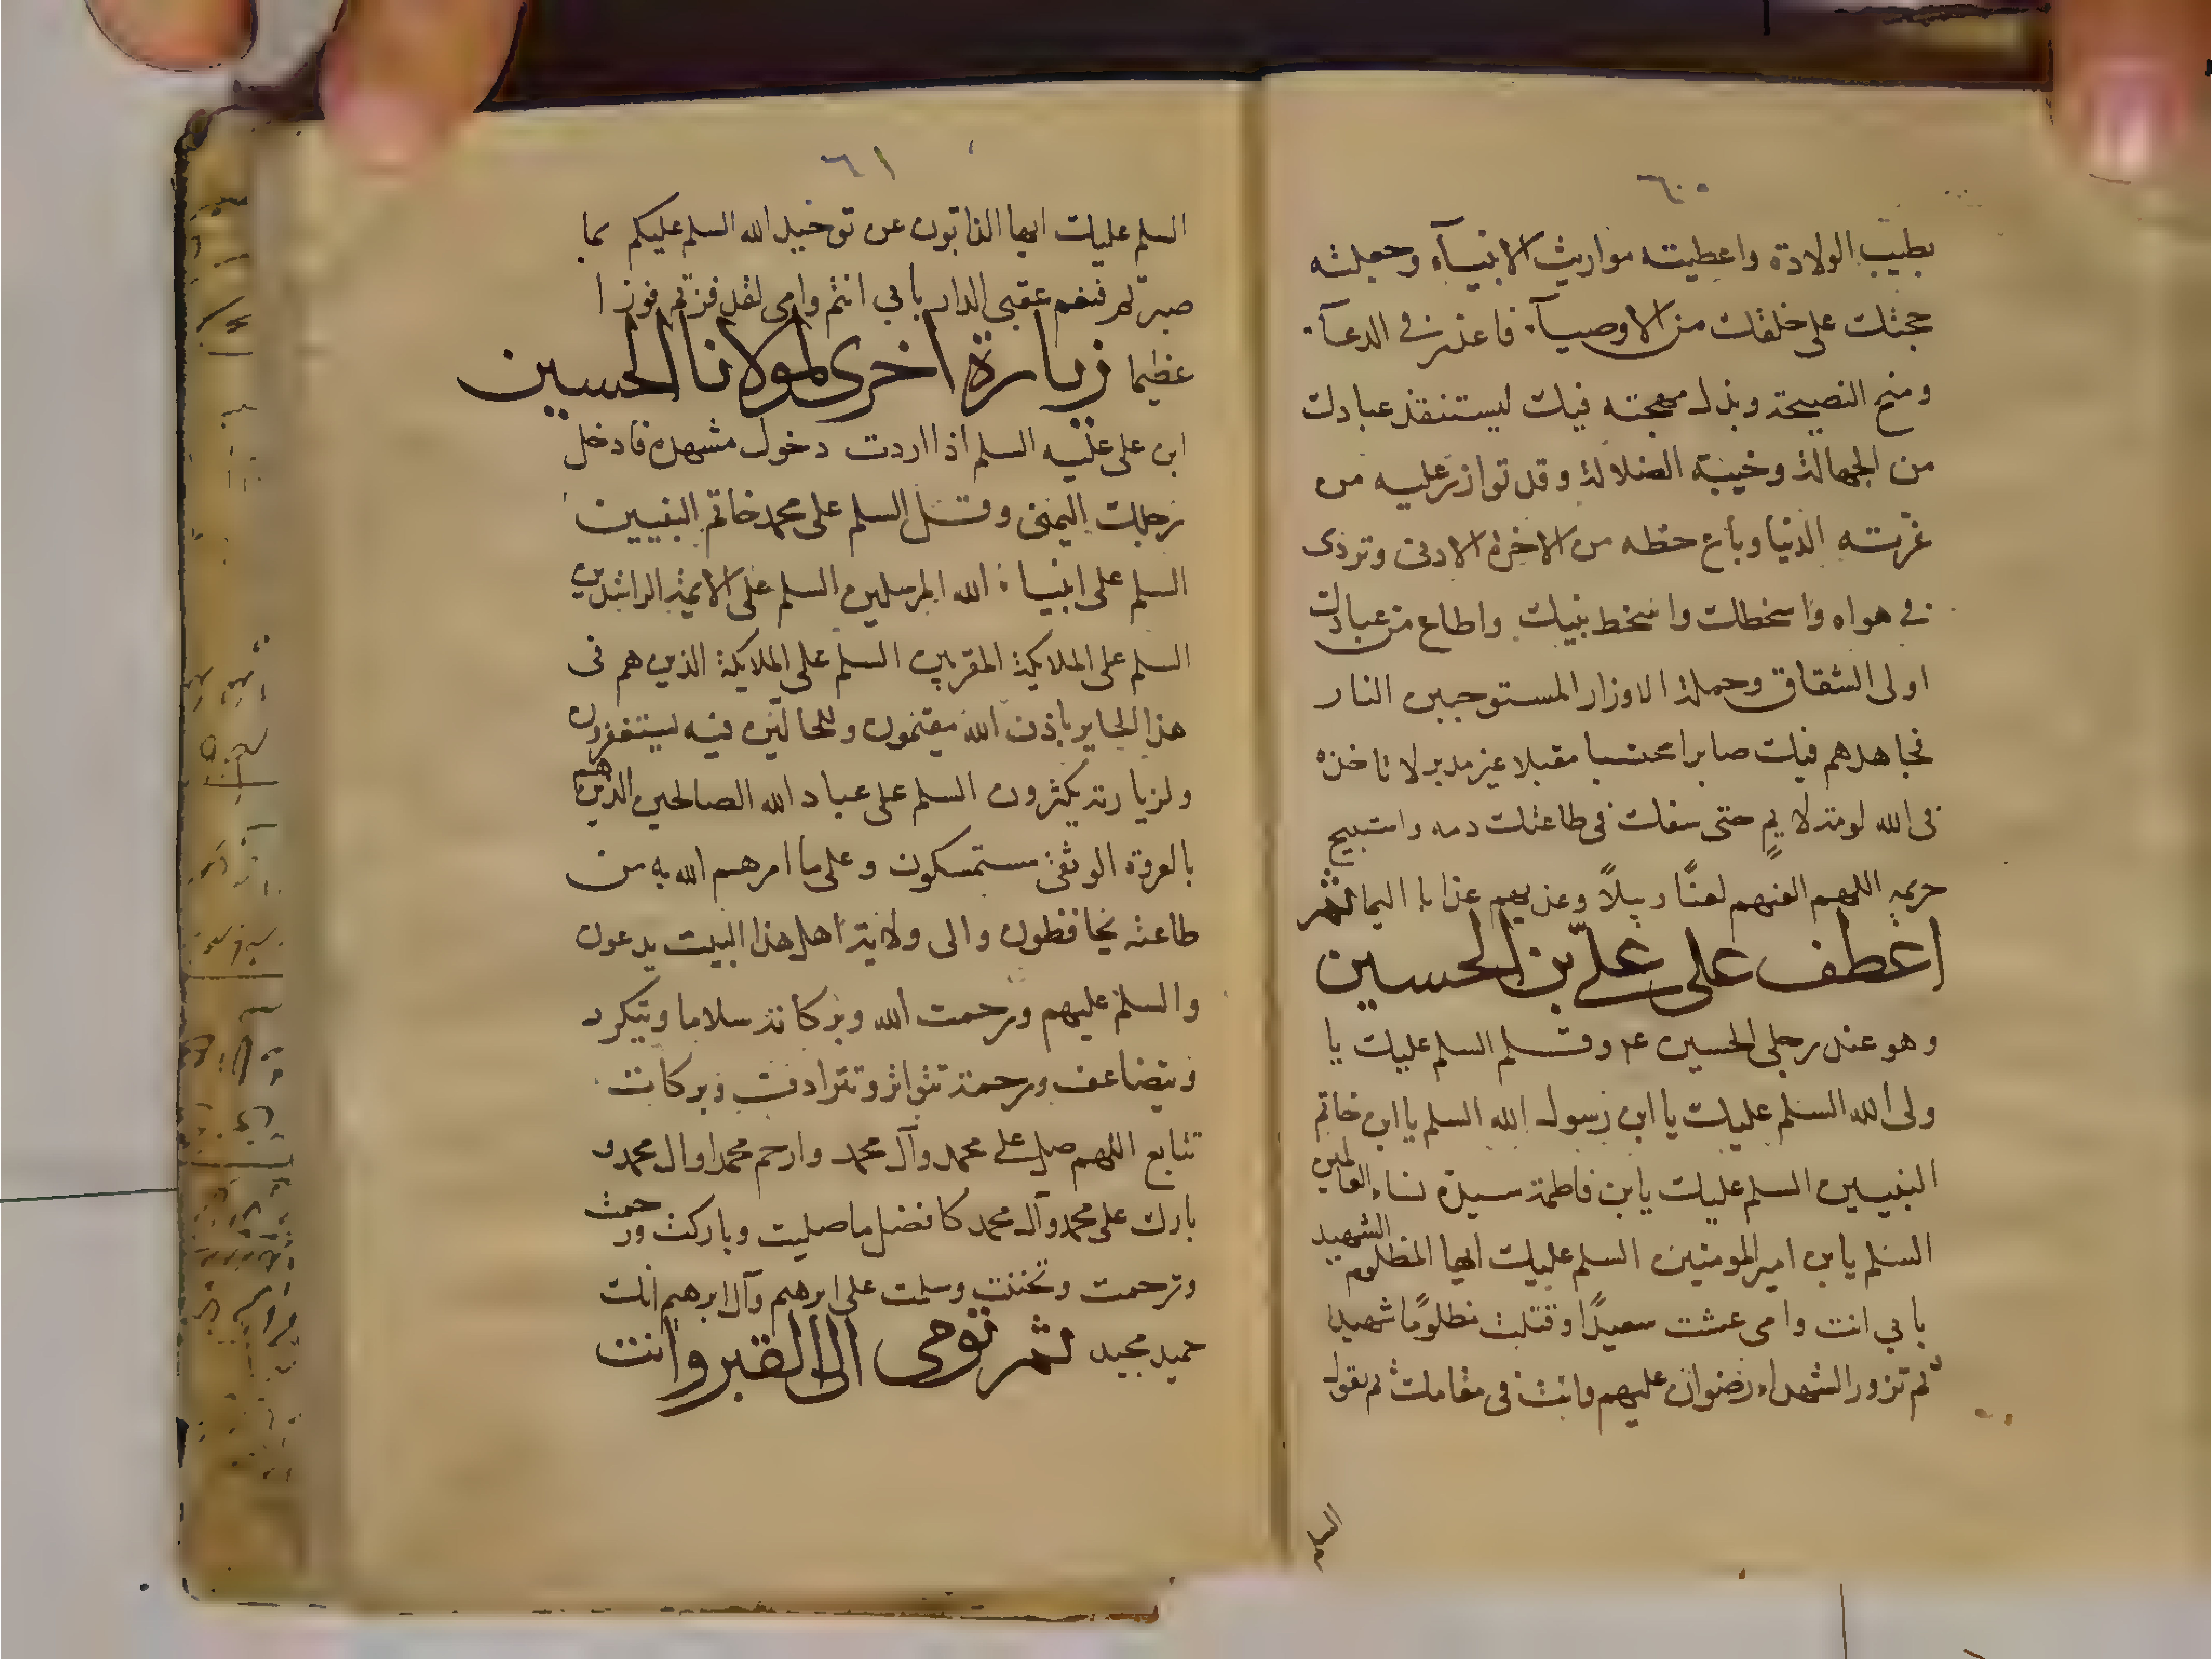 ٦٠
بطيب الولادة واعطيته مواريث الانبيآء وجعلته
حجتك على خلقك من الاوصيآء فاعذر في الدعآء
ومنح النصيحة وبذل مهجته فيك ليستنقذ عبادك
من الجهالة وخيبة الضلالة وقد توازر عليه من
غرته الدنيا وباع حظه من الاخرة الادنى وتردى
في هواه واسخطك واسخط نبيك واطاع من عبادك
اولى الشقاق وحملة الاوزار المستوجبين النار
فجاهدهم فيك صابرا محتسبا مقبلا غير مدبر لا تاخذه
في الله لومة لايم حتى سفك في طاعتك دمه واستبيح
حريمه اللهم العنهم لعنًا وبيلاً وعذبهم عذابا اليما ثمر
اعطف على عليّ بن الحسين
وهو عند رجلى الحسين ع وقل السلم عليك يا
ولى الله السلم عليك يا ابن رسول الله السلم يا ابن خاتم
النبيين السلم عليك يابن فاطمة سيدة نساء العالمين
السلم يابن امير المومنين السلم عليك ايها المظلوم الشهيد
بابي انت وامي عشت سعيدًا وقتلت مظلومًا شهيدا
ثم تزور الشهداء رضوان عليهم وانت في مقامك ثم تقول
السلم
٦١
السلم عليك ايها الذابون عن توحيد الله السلم عليكم بما
صبرتم فنعم عقبى الدار بابي انتم وامي لقد فزتم فوزا
عظيما زيارة اخرى لمولانا الحسين
ابن على عليه السلم اذا اردت دخول مشهده فادخل
رجلك اليمنى وقل السلم على محمد خاتم النبيين
السلم على انبياء الله المرسلين السلم على الايمة الراشدين
السلم على الملايكة المقربين السلم على الملايكة الذين هم في
هذا الحاير باذن الله مقيمون فيه يستغفرون
ولزيارته يكثرون السلم على عباد الله الصالحين الذين هم
بالعروة الوثقى مستمسكون وعلى ما امرهم الله به من
طاعته يحافظون والى ولاية اهل هذا البيت يدعون
والسلم عليهم ورحمت الله وبركاته سلاما ويتكرر
ويتضاعف ورحمة تتواتر وتترادف وبركات
تتابع اللهم صل على محمد وآل محمد وارحم محمدا وال محمد و
بارك على محمد وآل محمد كافضل ما صليت وباركت ورحمت
وترحمت وتحننت وسلمت على ابرهيم وآل ابرهيم انك
حميد مجيد ثمر توحى الى القبر وانت